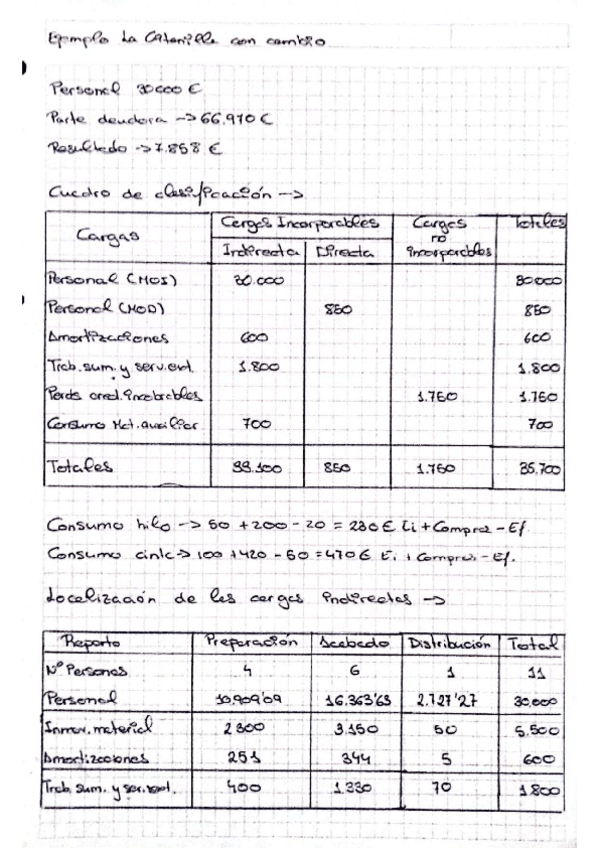 Ejemplo La Catanilla con cambio
Personal 30000 €
Parte deudora -> 66.970 €
Resultado -> 7.858 €
Cuadro de clasificación ->
Cargas Cargas Incorporables Cargas no incorporables Totales
Indirecta Directa
Personal (MOI) 30.000 30000
Personal (MOD) 850 850
Amortizaciones 600 600
Trab. sum. y serv. ext. 1.800 1.800
Perds cred. incobrables 1.750 1.750
Consumo Mat. auxiliar 700 700
Totales 33.100 850 1.750 35.700
Consumo hilo -> 50 + 200 - 20 = 230 € Ei + Compras - Ef.
Consumo cinta -> 100 + 420 - 50 = 470 € Ei + Compras - Ef.
Localización de las cargas indirectas ->
Reparto Preparación Acabado Distribución Total
Nº Personas 4 6 1 11
Personal 10.909'09 16.363'63 2.727'27 30.000
Inmov. material 2300 3.150 50 5.500
Amortizaciones 251 344 5 600
Trab. sum. y ser. ext. 400 1.330 70 1800